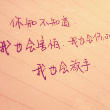 你知不知道
我也会害怕，我也会
我也会放手